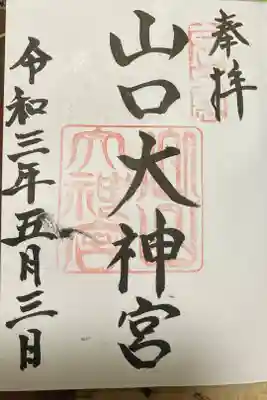 奉拝
山口大神宮
令和三年五月三日